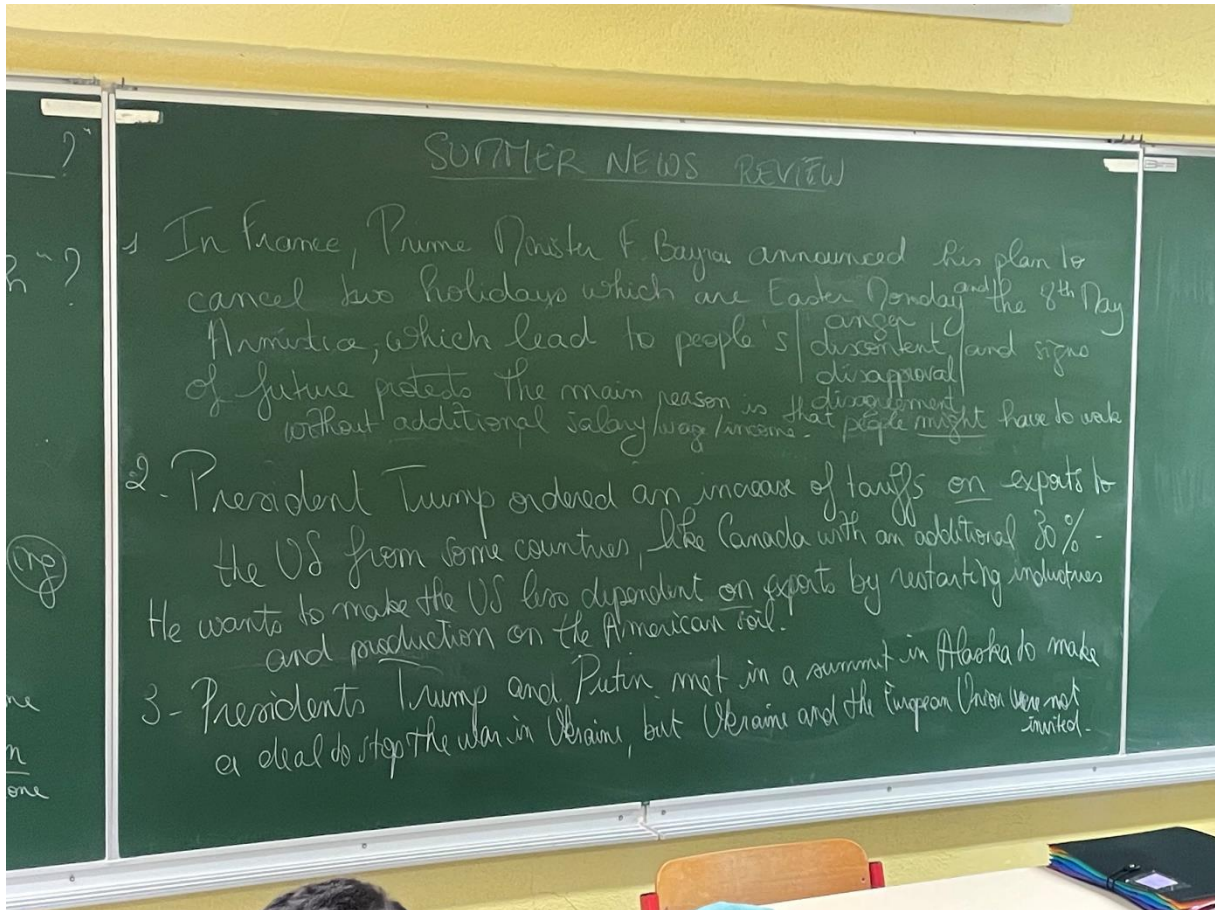 ?"
h "?
ing
ne
n
one
SUMMER NEWS REVIEW
1 In France, Prime Minister F. Bayrou announced his plan to
cancel two holidays which are Easter Monday and the 8th May
Armistice, which lead to people's anger
discontent and signs
disapproval
of future protests The main reason is that disagreement people might have to work
without additional salary/wage/income.
2. President Trump ordered an increase of tariffs on exports to
the US from some countries, like Canada with an additional 30% -
He wants to make the US less dependent on exports by restarting industries
and production on the American soil.
3- Presidents Trump and Putin met in a summit in Alaska to make
a deal to stop the war in Ukraine, but Ukraine and the European Union were not
invited.